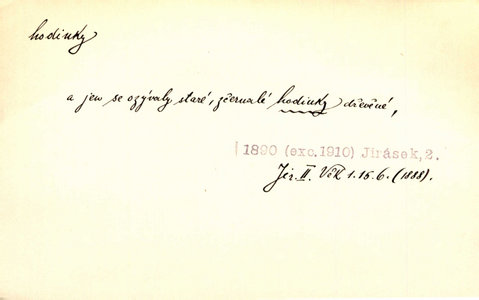 hodinky
a jen se ozývaly staré, zčernalé hodinky dřevěné,
1890 (exc.1910) Jirásek,2.
Jir. II. Věk 1.15.6. (1888).